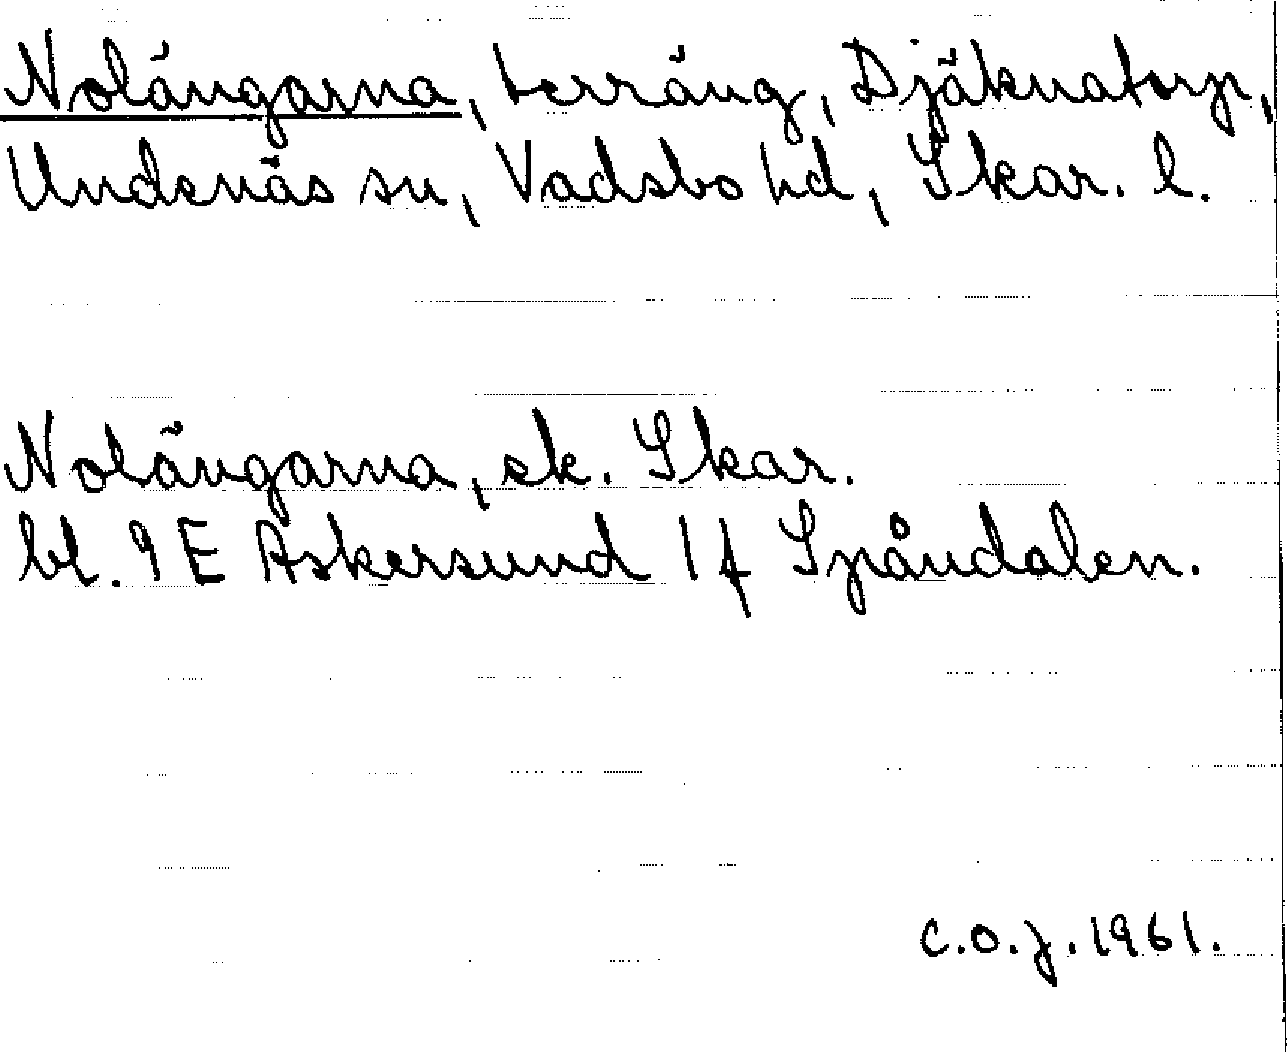 Nolängarna, terräng, Djäknatorp,
Undenäs sn, Vadsbo hd, Skar. l.
Nolängarna, ek. Skar.
bl. 9 E Askersund 1 f Spåndalen.
C.O.J. 1961.